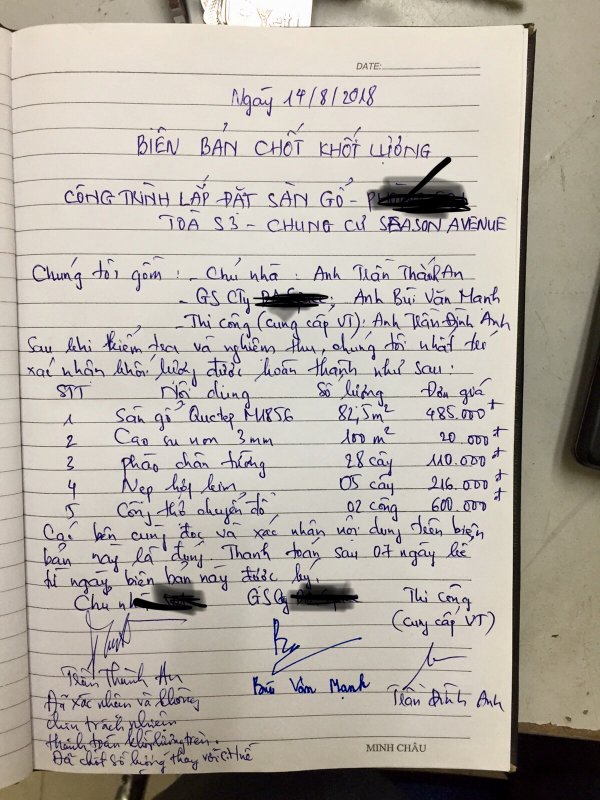 DATE:
Ngày 14/8/2018
BIÊN BẢN CHỐT KHỐI LƯỢNG
CÔNG TRÌNH LẮP ĐẶT SÀN GỖ -
TOÀ S3 - CHUNG CƯ SEASON AVENUE
Chúng tôi gồm : - Chủ nhà : Anh Trần Thành An
- GS CTy : Anh Bùi Văn Mạnh
- Thi công (cung cấp VT) : Anh Trần Đình Anh
Sau khi kiểm tra và nghiệm thu, chúng tôi nhất trí
xác nhận khối lượng được hoàn thành như sau :
STT Nội dung Số lượng Đơn giá
1 Sàn gỗ M1856 82,5m² 485.000đ
2 Cao su non 3mm 100m² 20.000đ
3 phào chân tường 28 cây 110.000đ
4 Nẹp hợp kim 05 cây 216.000đ
5 Công thợ chuyển đồ 02 công 600.000đ
Các bên cùng đọc và xác nhận nội dung trên biên
bản này là đúng. Thanh toán sau 07 ngày kể
từ ngày biên bản này được ký.
Chủ nhà GS Cty Thi công
(cung cấp VT)
Trần Thành An Bùi Văn Mạnh Trần Đình Anh
Đã xác nhận và không
chịu trách nhiệm
thanh toán khối lượng trên.
Đã chốt số lượng thay với C.Huế
MINH CHÂU